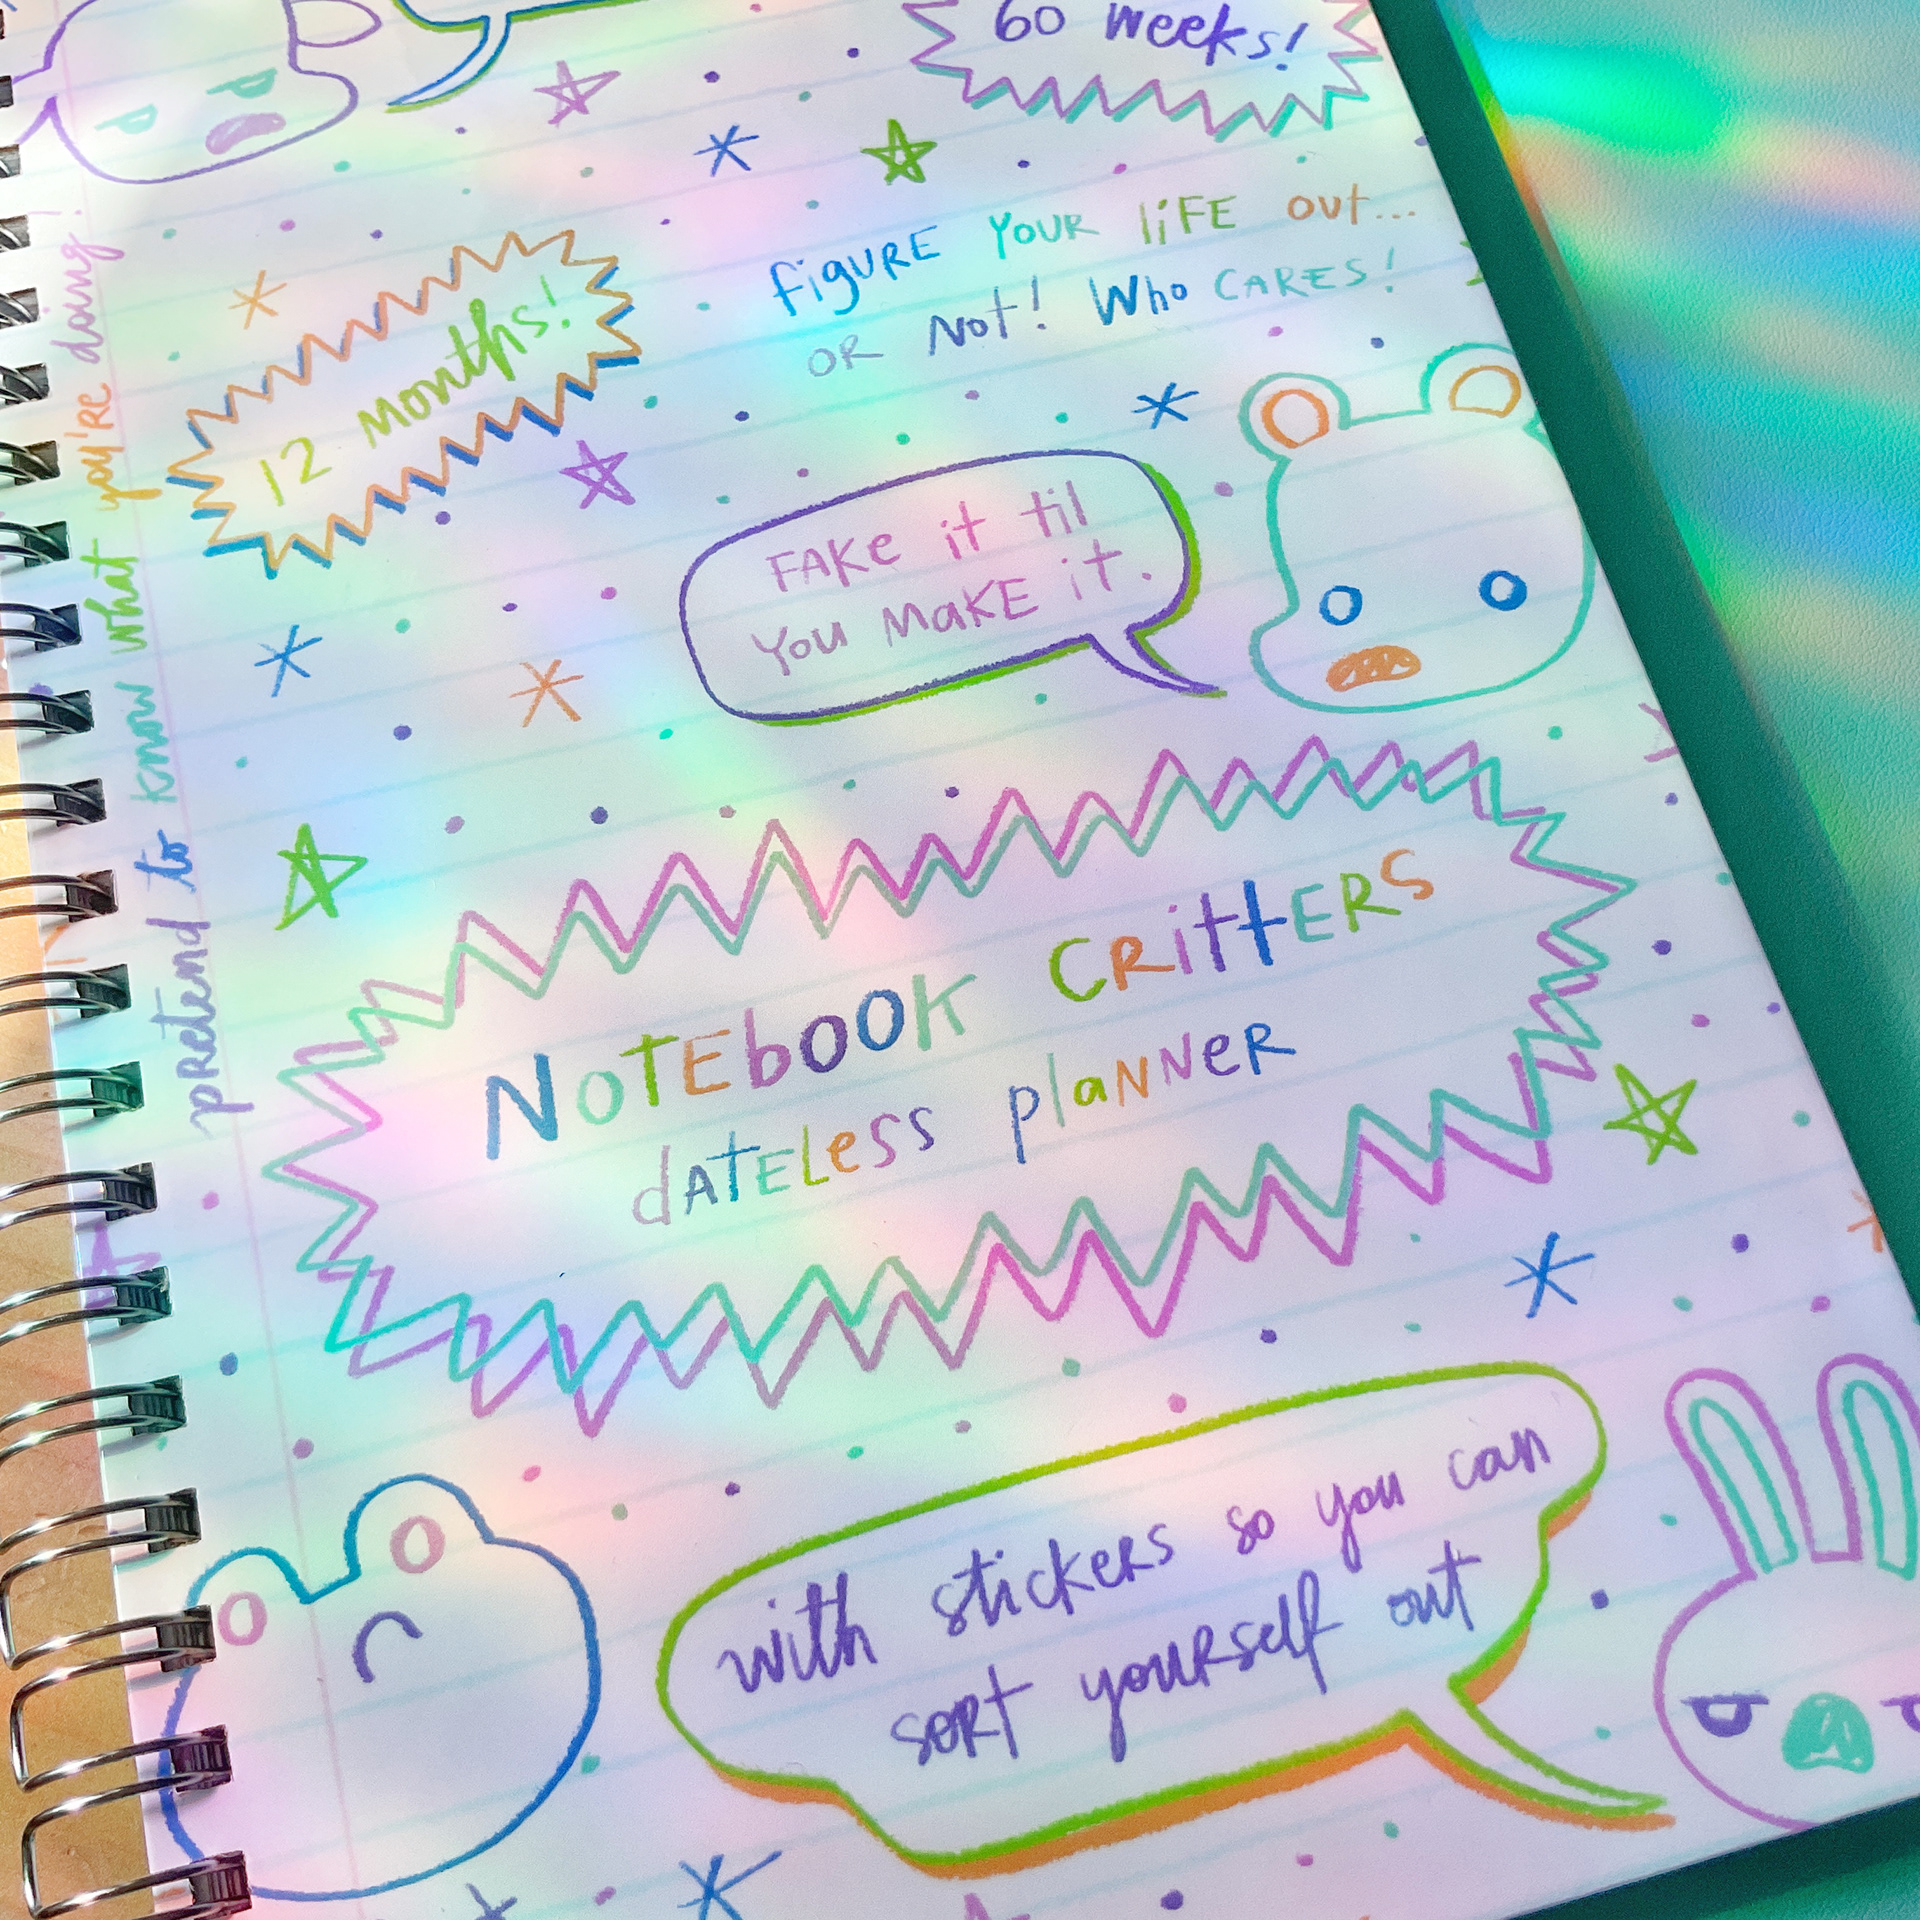 60 weeks!
figure your life out...
or not! Who cares!
12 months!
Fake it til
you make it.
pretend to know what you're doing!
Notebook Critters
dateless planner
with stickers so you can
sort yourself out